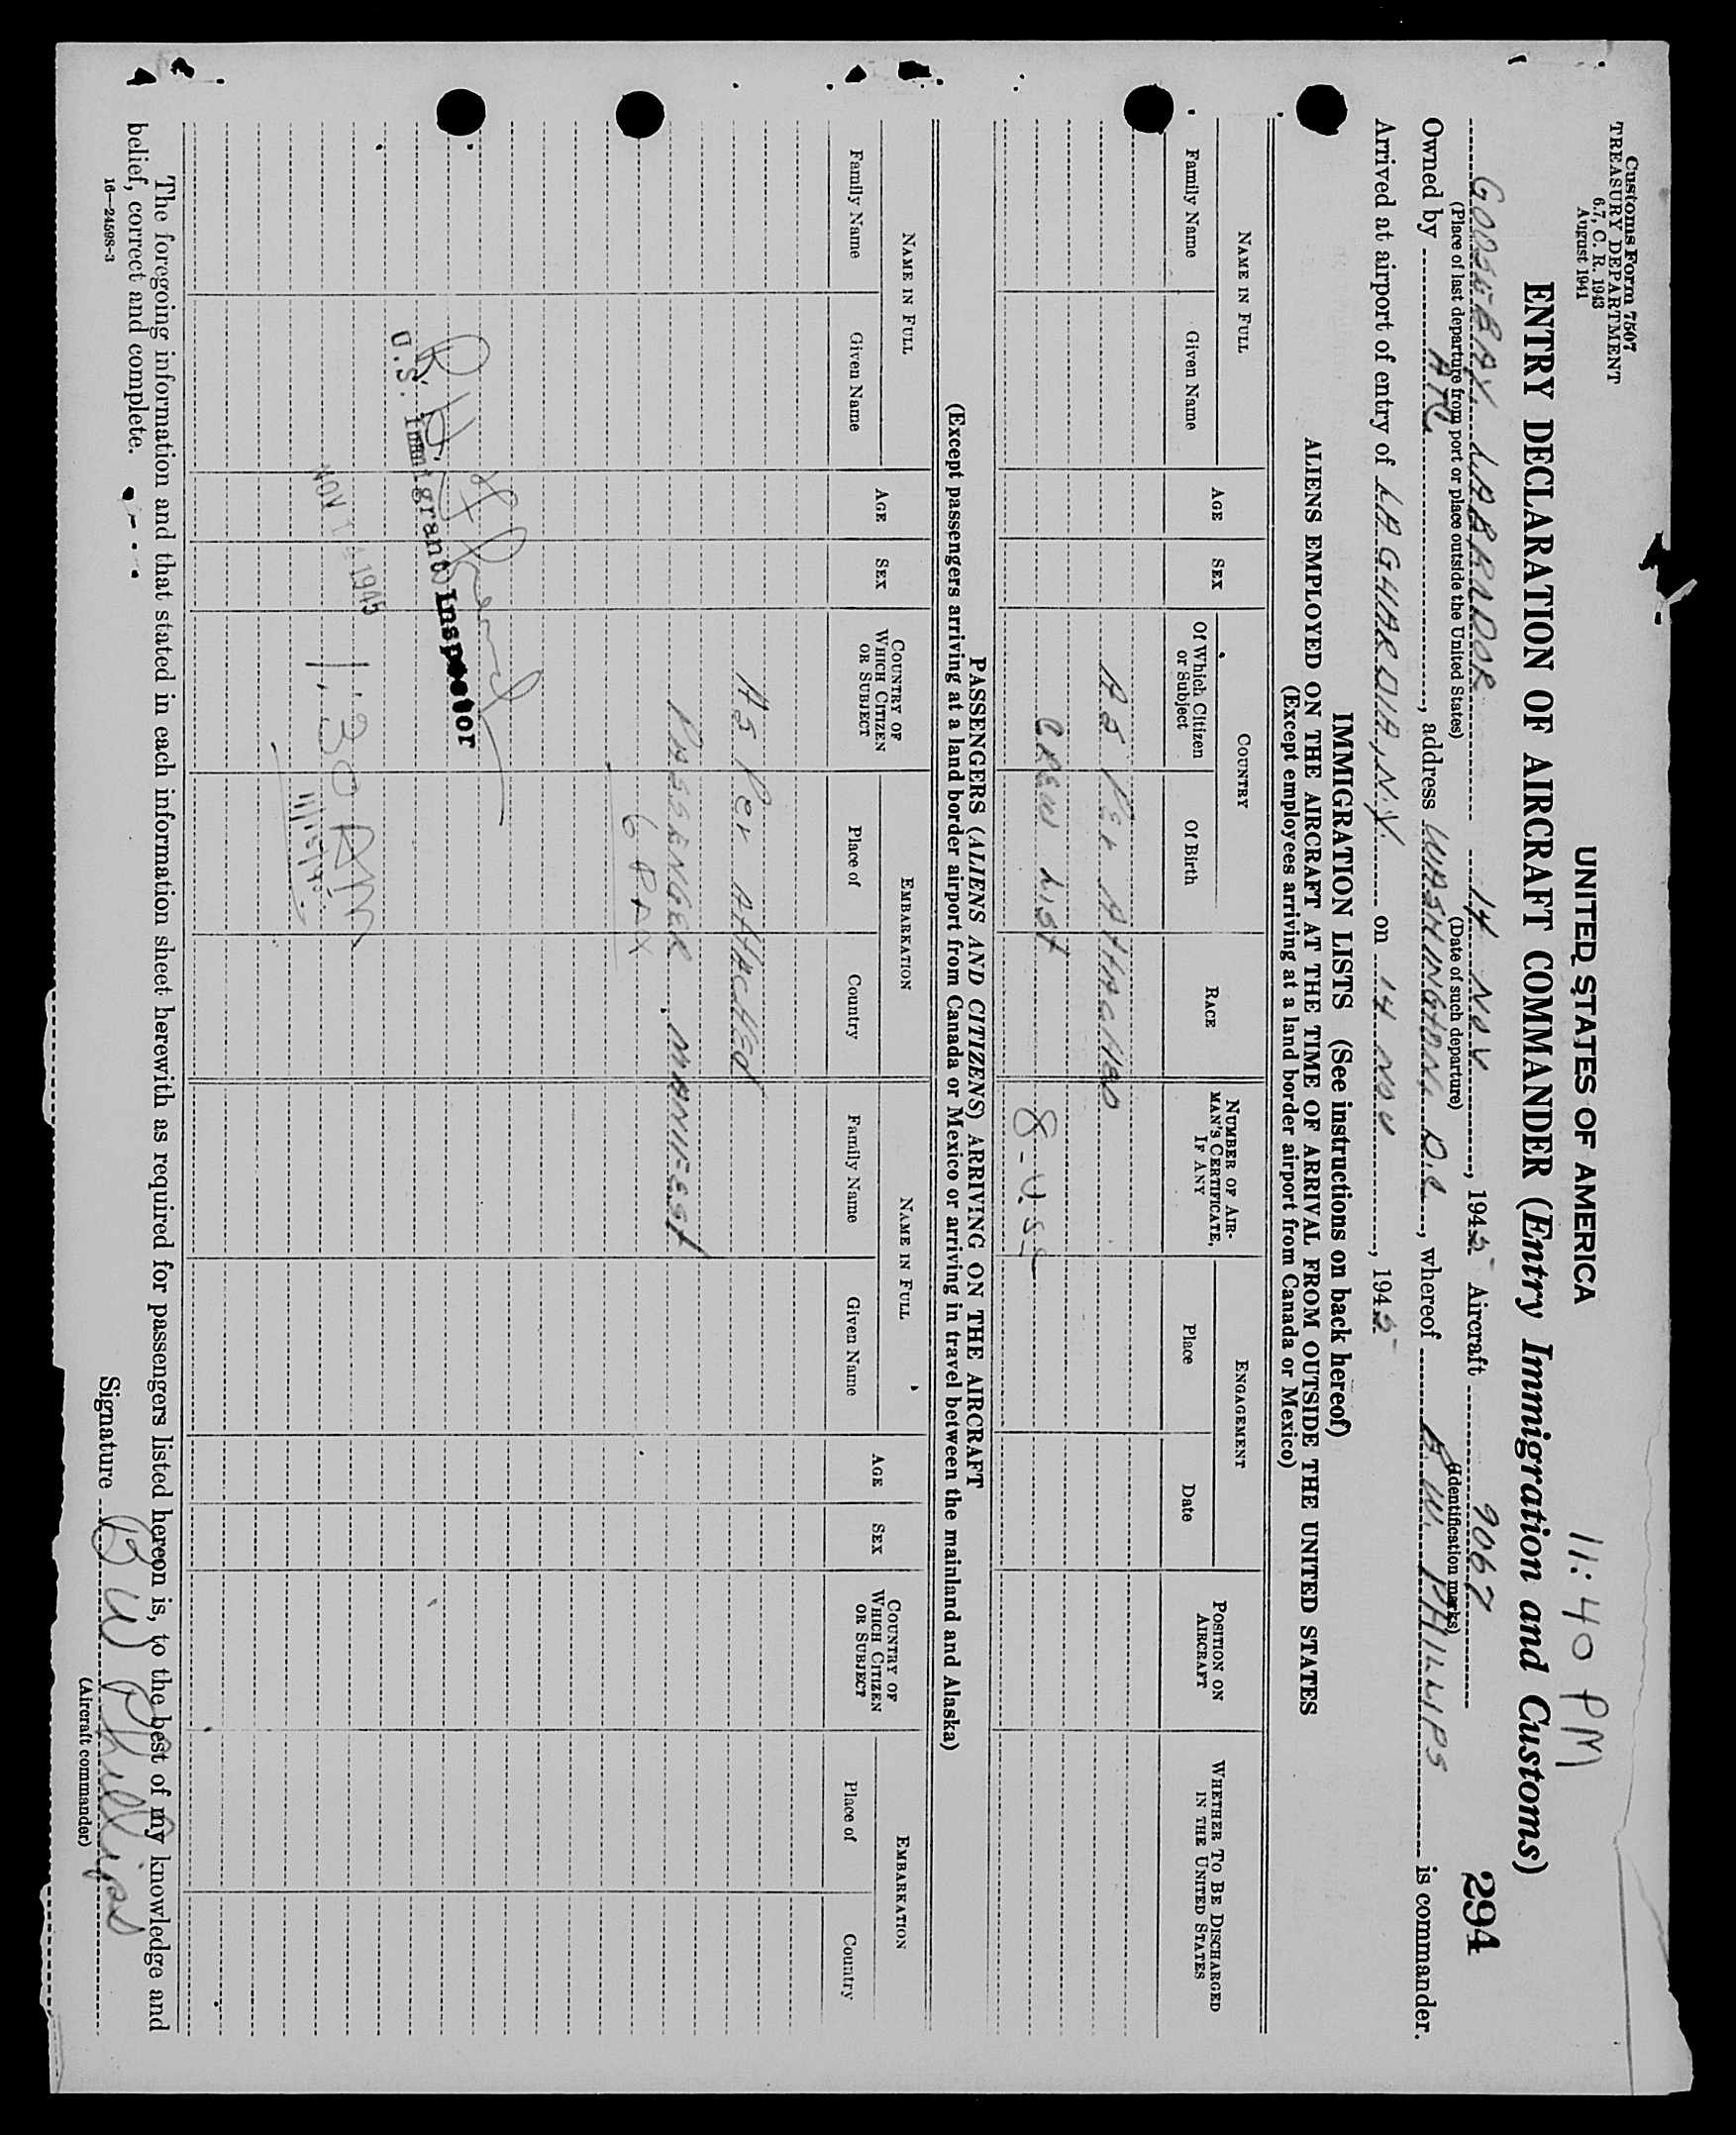 Customs Form 7507
TREASURY DEPARTMENT
6.7, C. R. 1943
August 1941
UNITED STATES OF AMERICA
11:40 PM
ENTRY DECLARATION OF AIRCRAFT COMMANDER (Entry Immigration and Customs)
294
GOOSE BAY, LABRADOR 14 NOV, 1945 Aircraft 9067
(Place of last departure from port or place outside the United States) (Date of such departure) (Identification marks)
Owned by ATC, address WASHINGTON, D.C., whereof B W. PHILLIPS is commander.
Arrived at airport of entry of LAGUARDIA, N.Y. on 14 NOV, 1945
IMMIGRATION LISTS (See instructions on back hereof)
ALIENS EMPLOYED ON THE AIRCRAFT AT THE TIME OF ARRIVAL FROM OUTSIDE THE UNITED STATES
(Except employees arriving at a land border airport from Canada or Mexico)
NAME IN FULL AGE SEX COUNTRY RACE NUMBER OF AIRMAN'S CERTIFICATE, IF ANY ENGAGEMENT POSITION ON AIRCRAFT WHETHER TO BE DISCHARGED IN THE UNITED STATES
Family Name Given Name Of Which Citizen or Subject Of Birth Place Date
AS PER ATTACHED
CREW LIST
8-U.S.
PASSENGERS (ALIENS AND CITIZENS) ARRIVING ON THE AIRCRAFT
(Except passengers arriving at a land border airport from Canada or Mexico or arriving in travel between the mainland and Alaska)
NAME IN FULL AGE SEX COUNTRY OF WHICH CITIZEN OR SUBJECT EMBARKATION NAME IN FULL AGE SEX COUNTRY OF WHICH CITIZEN OR SUBJECT EMBARKATION
Family Name Given Name Place of Country Family Name Given Name Place of Country
AS Per AttACHED
PASSENGER MANIFEST
6 PAX
U.S. Immigrant Inspector
NOV 14 1945
1:30 AM
The foregoing information and that stated in each information sheet herewith as required for passengers listed hereon is, to the best of my knowledge and
belief, correct and complete.
Signature B W Phillips
(Aircraft commander)
16—24598-3